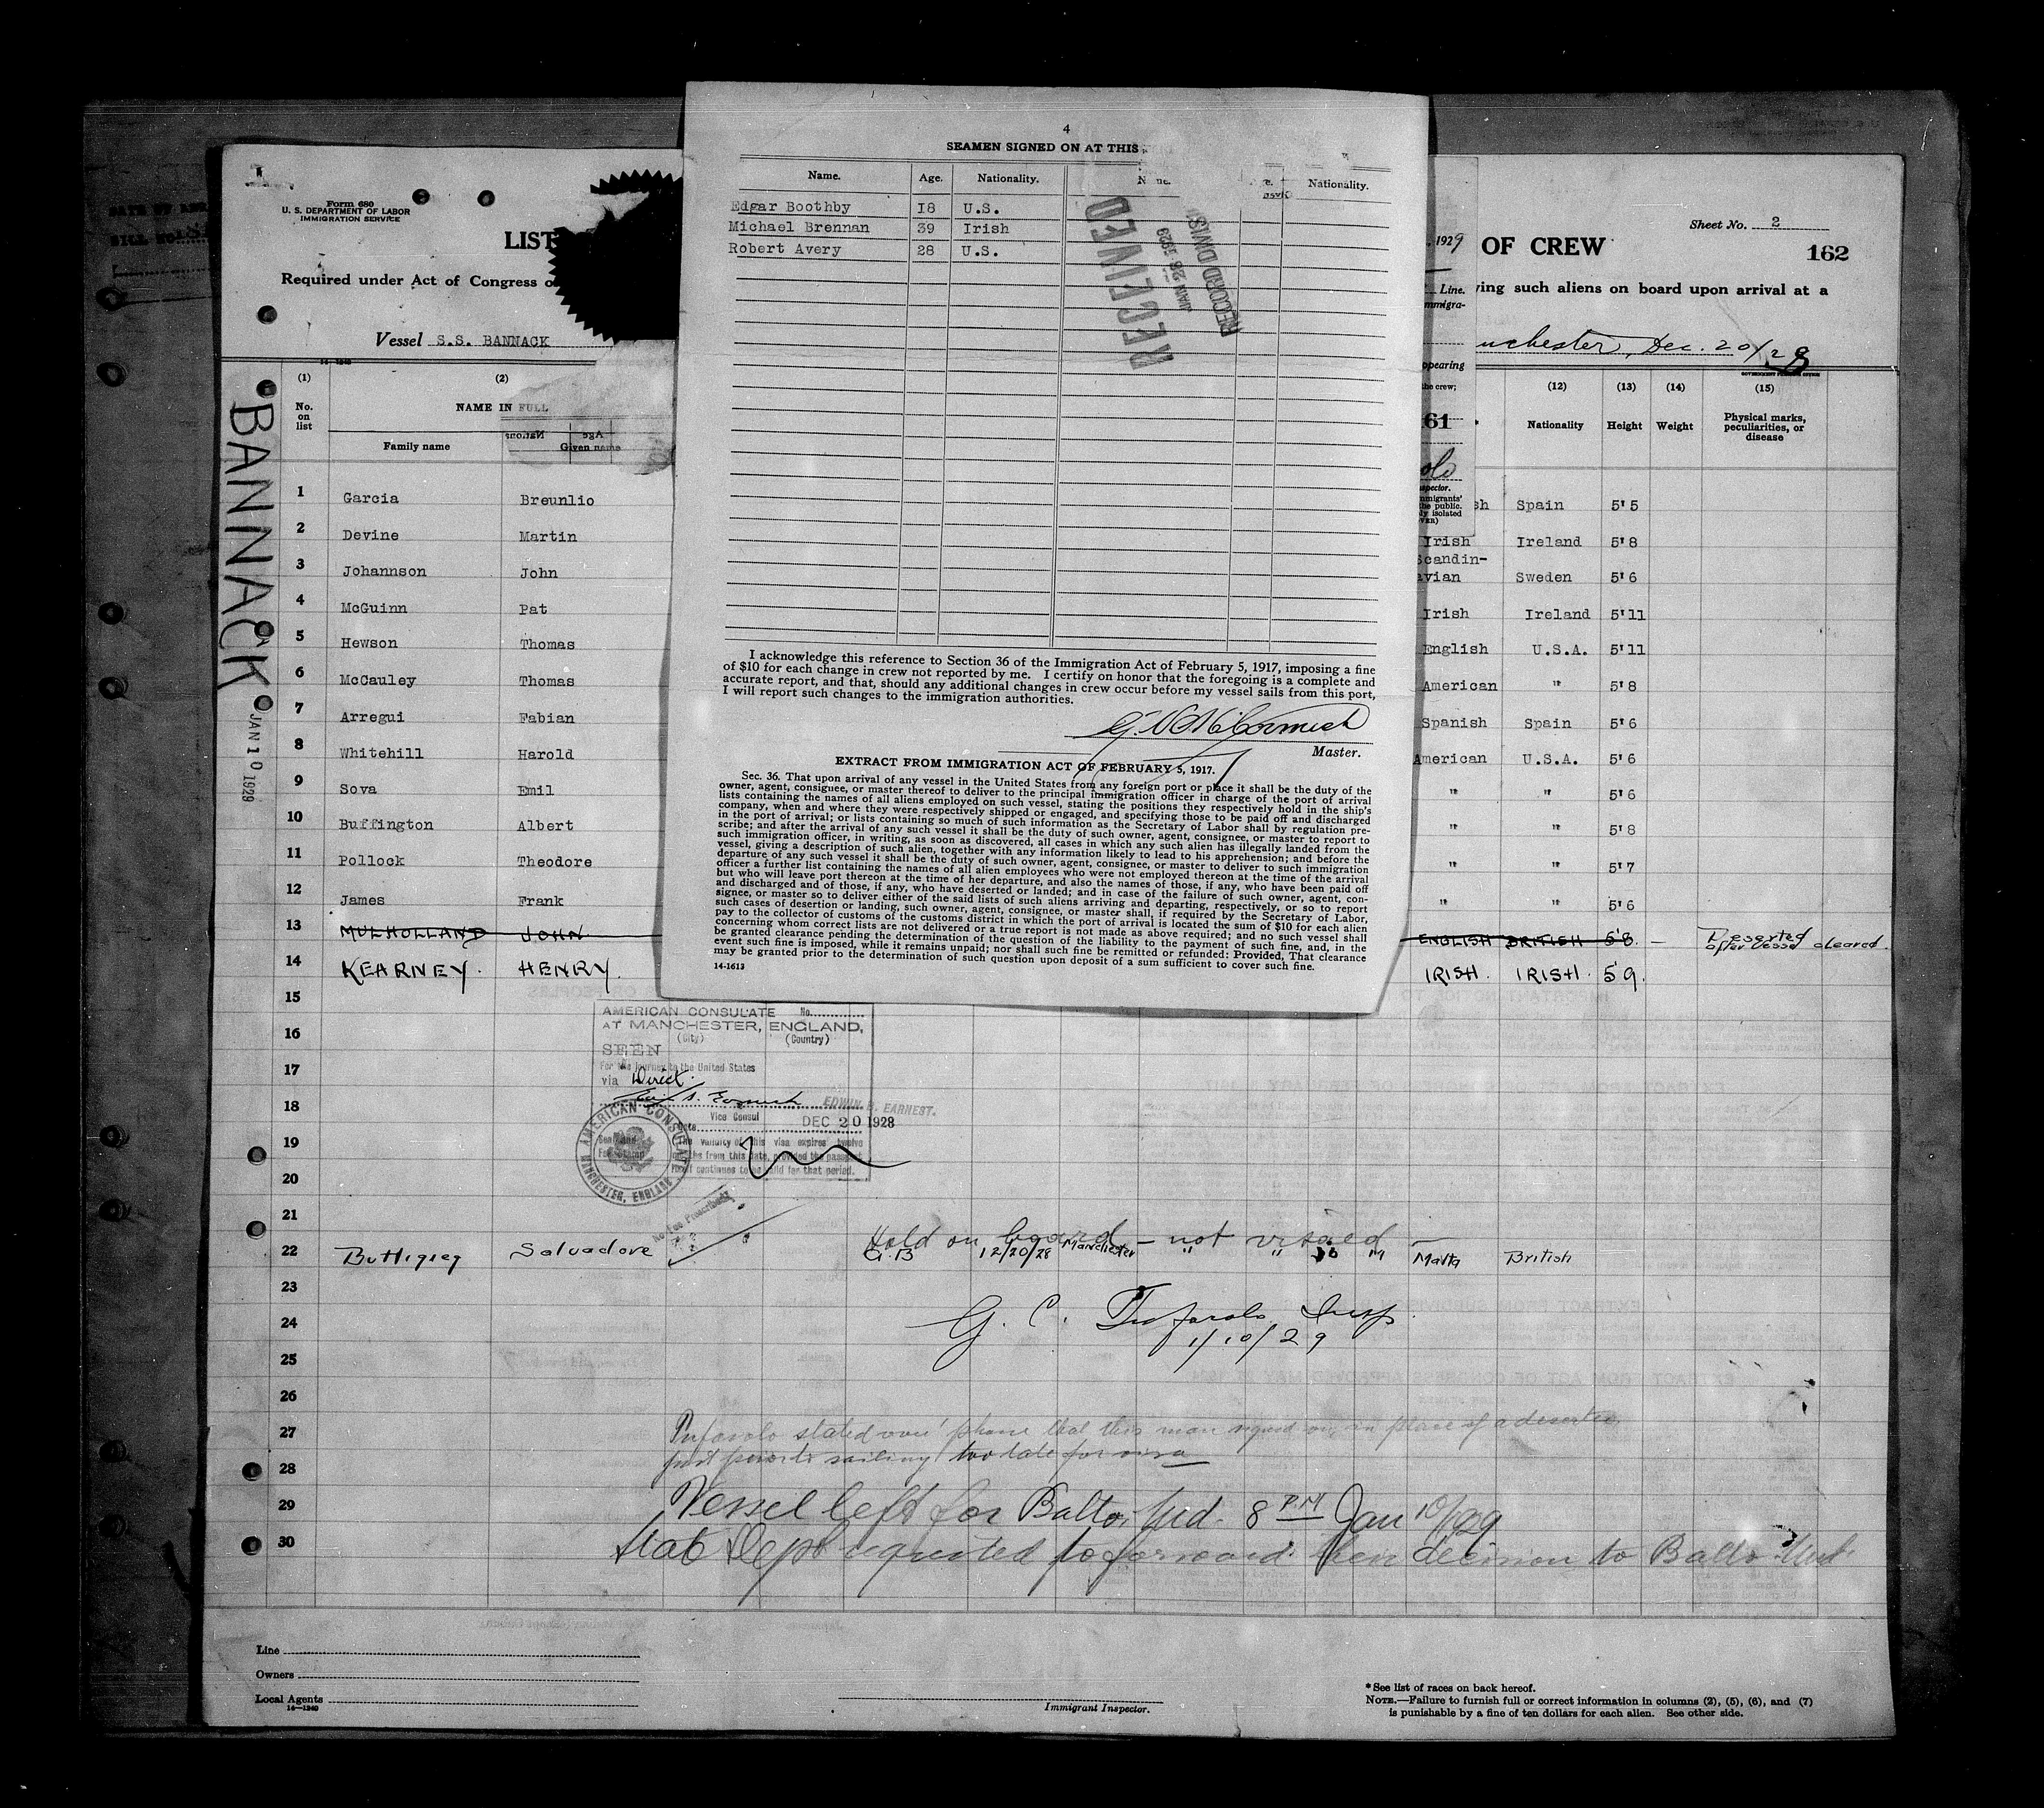 4
SEAMEN SIGNED ON AT THIS
Name. Age. Nationality. Nationality.
Edgar Boothby 18 U.S.
Michael Brennan 39 Irish
Robert Avery 28 U.S.
RECEIVED
JUAN 28 1929
RECORD DIVISI
I acknowledge this reference to Section 36 of the Immigration Act of February 5, 1917, imposing a fine
of $10 for each change in crew not reported by me. I certify on honor that the foregoing is a complete and
accurate report, and that, should any additional changes in crew occur before my vessel sails from this port,
I will report such changes to the immigration authorities.
McCormick
Master.
EXTRACT FROM IMMIGRATION ACT OF FEBRUARY 5, 1917.
Sec. 36. That upon arrival of any vessel in the United States from any foreign port or place it shall be the duty of the
owner, agent, consignee, or master thereof to deliver to the principal immigration officer in charge of the port of arrival
lists containing the names of all aliens employed on such vessel, stating the positions they respectively hold in the ship's
company, when and where they were respectively shipped or engaged, and specifying those to be paid off and discharged
in the port of arrival; or lists containing so much of such information as the Secretary of Labor shall by regulation pre-
scribe; and after the arrival of any such vessel it shall be the duty of such owner, agent, consignee, or master to report to
such immigration officer, in writing, as soon as discovered, all cases in which any such alien has illegally landed from the
vessel, giving a description of such alien, together with any information likely to lead to his apprehension; and before the
departure of any such vessel it shall be the duty of such owner, agent, consignee, or master to deliver to such immigration
officer a further list containing the names of all alien employees who were not employed thereon at the time of the arrival
but who will leave port thereon at the time of her departure, and also the names of those, if any, who have been paid off
and discharged and of those, if any, who have deserted or landed; and in case of the failure of such owner, agent, con-
signee, or master so to deliver either of the said lists of such aliens arriving and departing, respectively, or so to report
such cases of desertion or landing, such owner, agent, consignee, or master shall, if required by the Secretary of Labor,
pay to the collector of customs of the customs district in which the port of arrival is located the sum of $10 for each alien
concerning whom correct lists are not delivered or a true report is not made as above required; and no such vessel shall
be granted clearance pending the determination of the question of the liability to the payment of such fine, and, in the
event such fine is imposed, while it remains unpaid; nor shall such fine be remitted or refunded: Provided, That clearance
may be granted prior to the determination of such question upon deposit of a sum sufficient to cover such fine.
14-1613
Form 680
U. S. DEPARTMENT OF LABOR
IMMIGRATION SERVICE
LIST OF CREW
Sheet No. 2
162
, 1929
Line.
mmigra-
Required under Act of Congress o ving such aliens on board upon arrival at a
Vessel S.S. BANNACK nchester, Dec. 20/28
14-1240
ppearing
the crew;
61
BANNACK
JAN 10 1929
(1) (2) (12) (13) (14) (15)
No. on list NAME IN FULL Nationality Height Weight Physical marks, peculiarities, or disease
Family name Given name
spector.
mmigrants'
the public.
ly isolated
VER)
1 Garcia Breunlio sh Spain 5'5
2 Devine Martin Irish Ireland 5'8
3 Johannson John Scandin-avian Sweden 5'6
4 McGuinn Pat Irish Ireland 5'11
5 Hewson Thomas English U.S.A. 5'11
6 McCauley Thomas American " 5'8
7 Arregui Fabian Spanish Spain 5'6
8 Whitehill Harold American U.S.A. 5'6
9 Sova Emil " " 5'6
10 Buffington Albert " " 5'8
11 Pollock Theodore " " 5'7
12 James Frank " " 5'6
13 MULHOLLAND JOHN ENGLISH BRITISH 5'8. — Deserted after vessel cleared
14 KEARNEY. HENRY. IRISH. IRISH. 5'9.
15
16
17
18
19
20
21
AMERICAN CONSULATE No.
AT MANCHESTER, ENGLAND,
(City) (Country)
SEEN
For the journey to the United States
via Direct.
EDWIN B. EARNEST.
Vice Consul
Date DEC 20 1928
The validity of this visa expires twelve
months from this date, provided the passport
itself continues to be valid for that period.
AMERICAN CONSULATE MANCHESTER, ENGLAND
No Fee Prescribed
Held on board — not visaed —
22 Buttigieg Salvadore G.B 12/20/28 Manchester " " 30 M Malta British
23
24
G. C. Insp.
1/10/29
25
26
27
stated over phone that this man signed on in place of a deserter
28
just prior to sailing too late for visa
29 Vessel left for Balto, Md. 8 P.M Jan 10/1929
30 Dept requested to forward their decision to Balto Md.
Line
Owners
Local Agents
14-1240
Immigrant Inspector.
*See list of races on back hereof.
NOTE.—Failure to furnish full or correct information in columns (2), (5), (6), and (7)
is punishable by a fine of ten dollars for each alien. See other side.